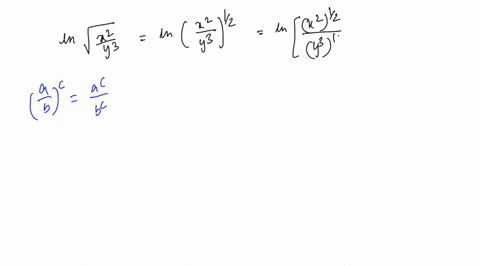 ln √(x²/y³) = ln (x²/y³)^1/2 = ln [(x²)^1/2/(y³)^(1
(a/b)^c = a^c/b^c